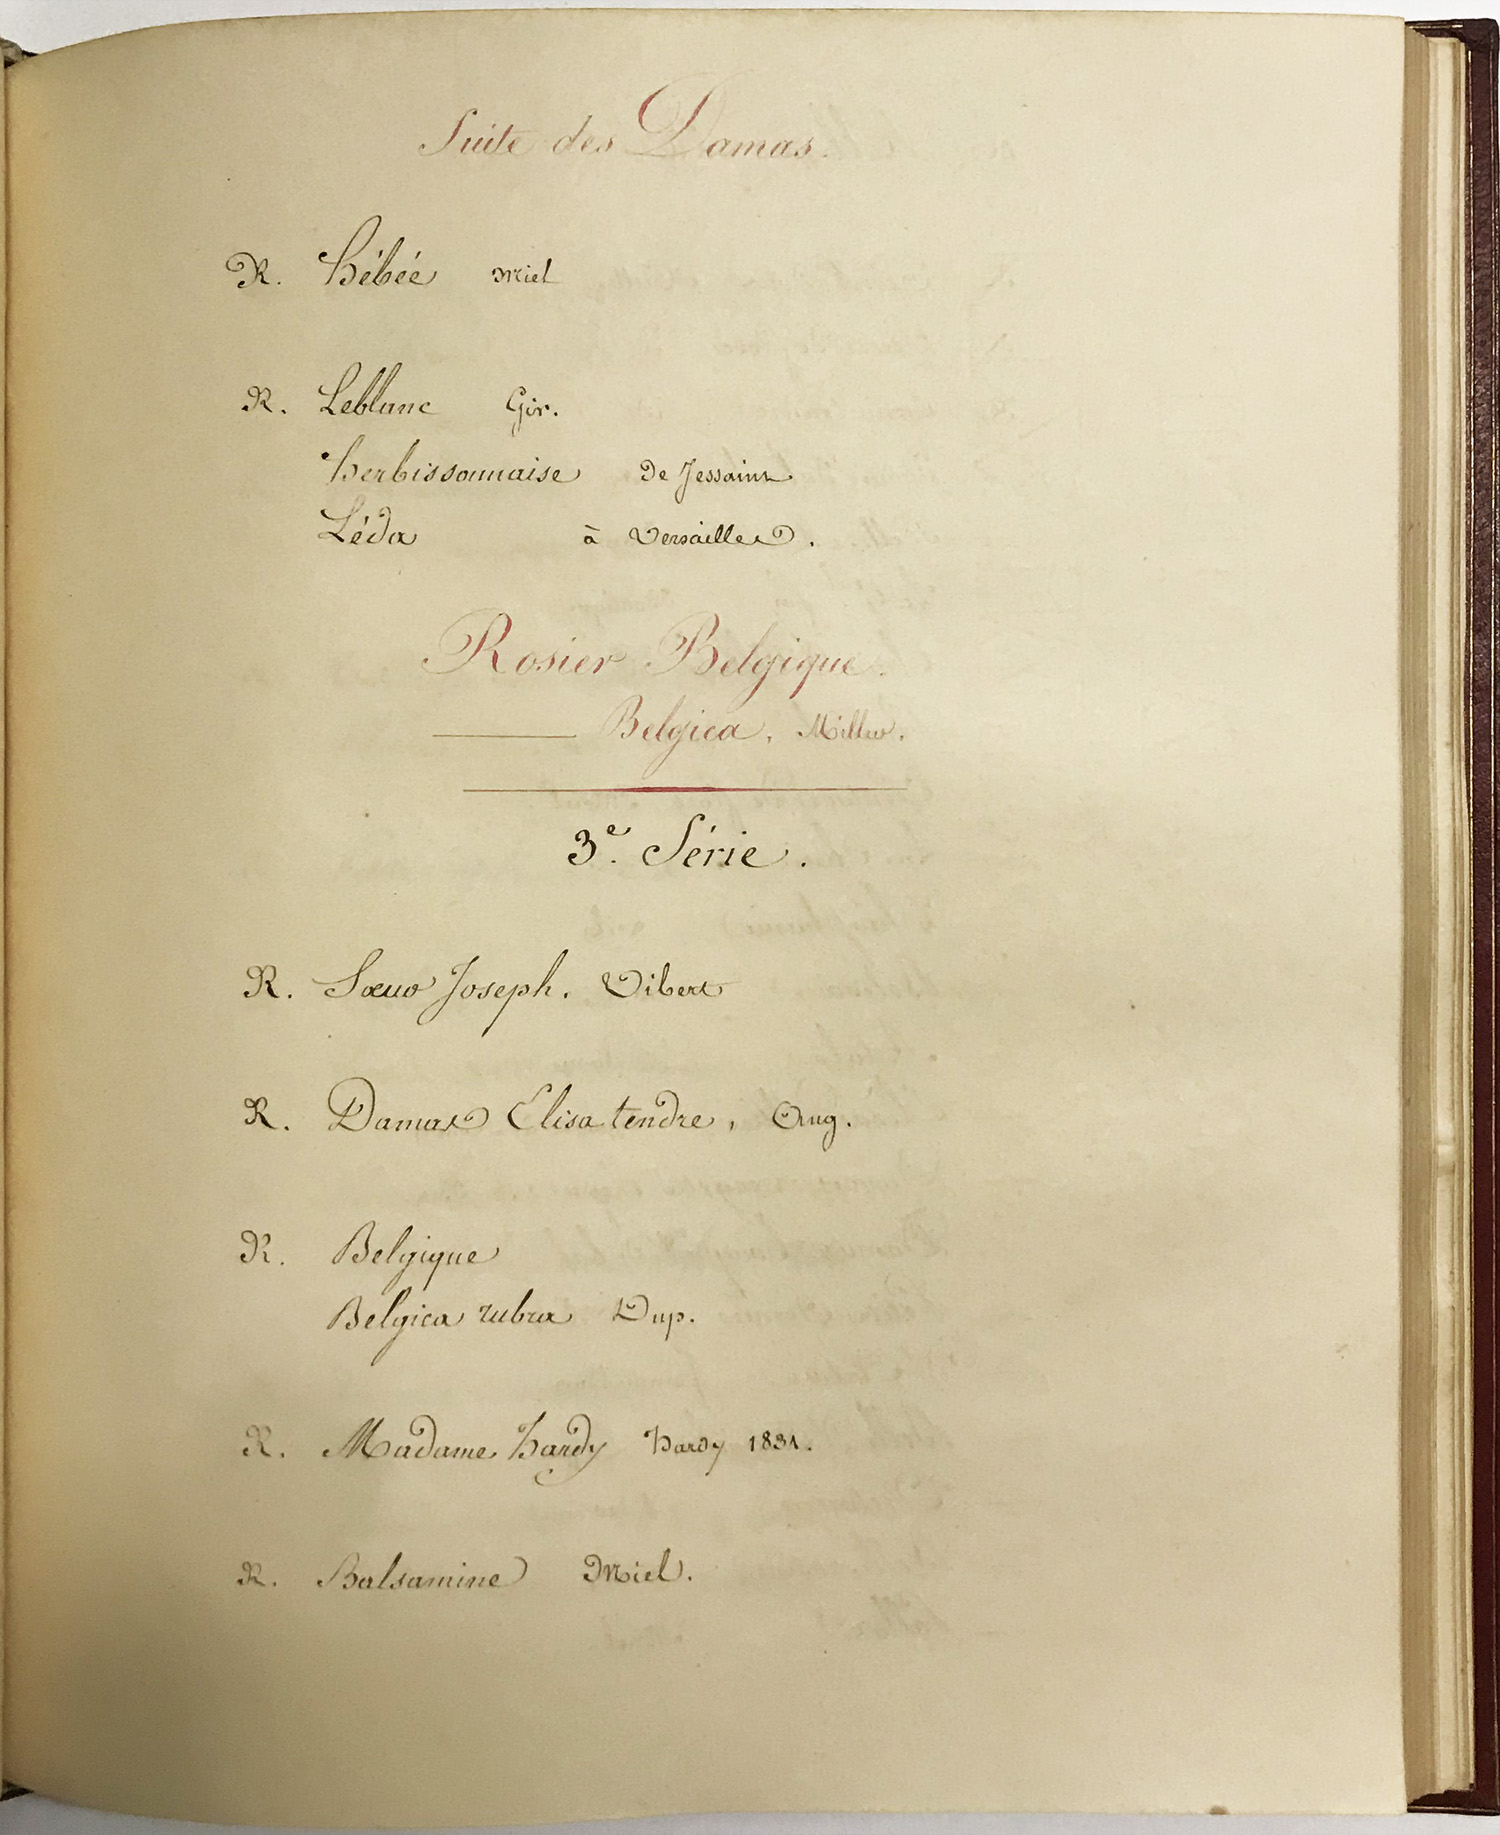 Suite des Damas.
R. hébée Miel
R. Leblanc Gir.
herbissonnaise De Jessaint
Léda à Versailles.
Rosier Belgique.
Belgica, Miller.
3e. Série.
R. Sœur Joseph. Vibert
R. Damas Elisa tendre, Aug.
R. Belgique
Belgica rubra Dup.
R. Madame hardy hardy 1831.
R. Balsamine Miel.